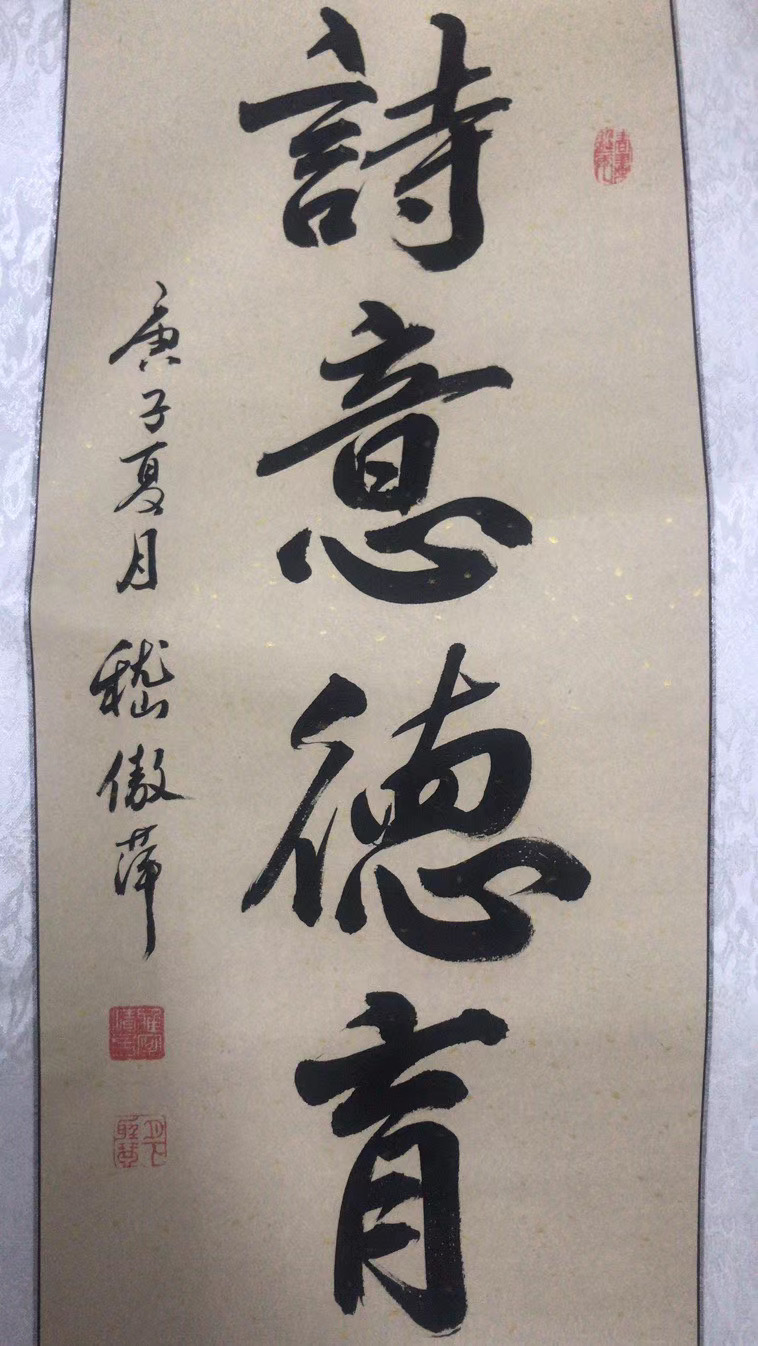 詩意德育
庚子夏月 嵇傲萍